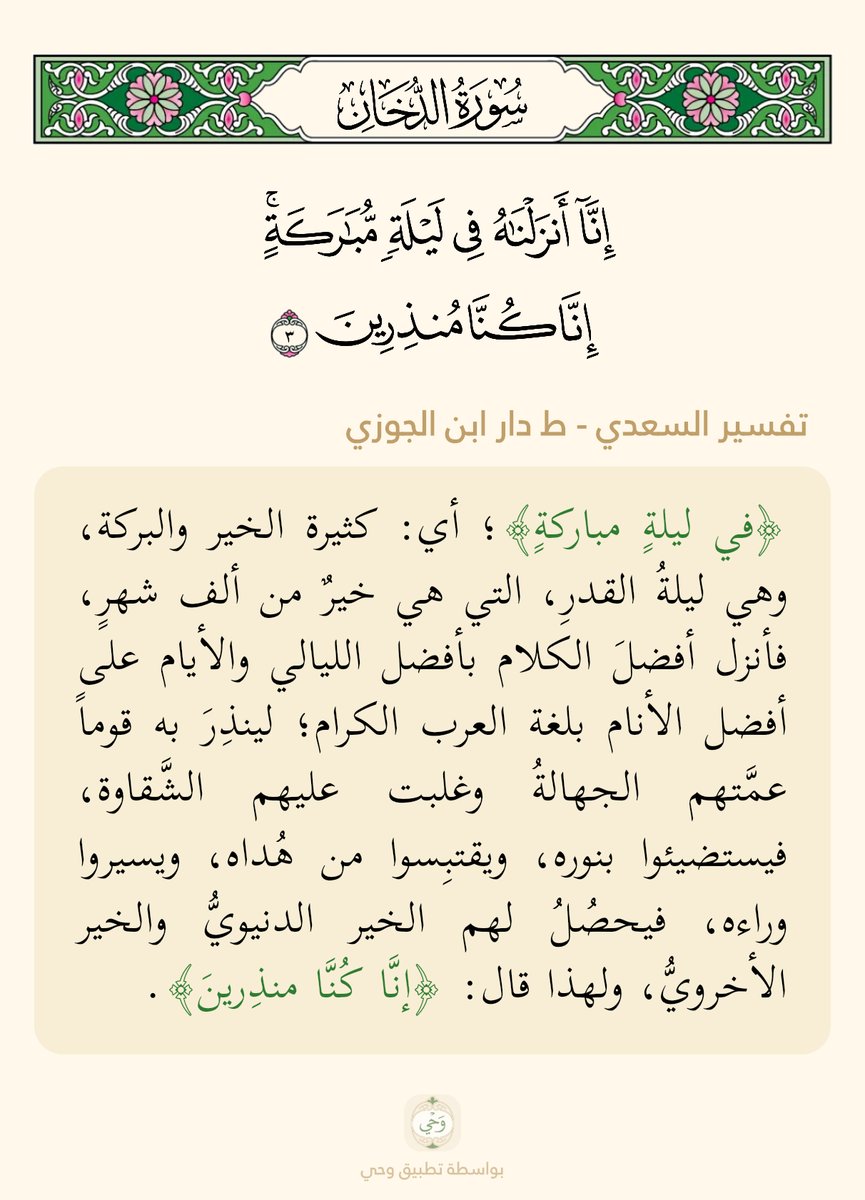 سُورَةُ الدُّخَانِ
إِنَّآ أَنزَلْنَٰهُ فِى لَيْلَةٍۢ مُّبَٰرَكَةٍۚ
إِنَّا كُنَّا مُنذِرِينَ ٣
تفسير السعدي - ط دار ابن الجوزي
﴿في ليلةٍ مباركةٍ﴾؛ أي: كثيرة الخير والبركة،
وهي ليلةُ القدرِ، التي هي خيرٌ من ألف شهرٍ،
فأنزل أفضلَ الكلام بأفضل الليالي والأيام على
أفضل الأنام بلغة العرب الكرام؛ لينذِرَ به قوماً
عمَّتهم الجهالةُ وغلبت عليهم الشَّقاوة،
فيستضيئوا بنوره، ويقتبِسوا من هُداه، ويسيروا
وراءه، فيحصُلُ لهم الخير الدنيويُّ والخير
الأخرويُّ، ولهذا قال: ﴿إنَّا كُنَّا منذِرينَ﴾.
وَحْي
بواسطة تطبيق وحي